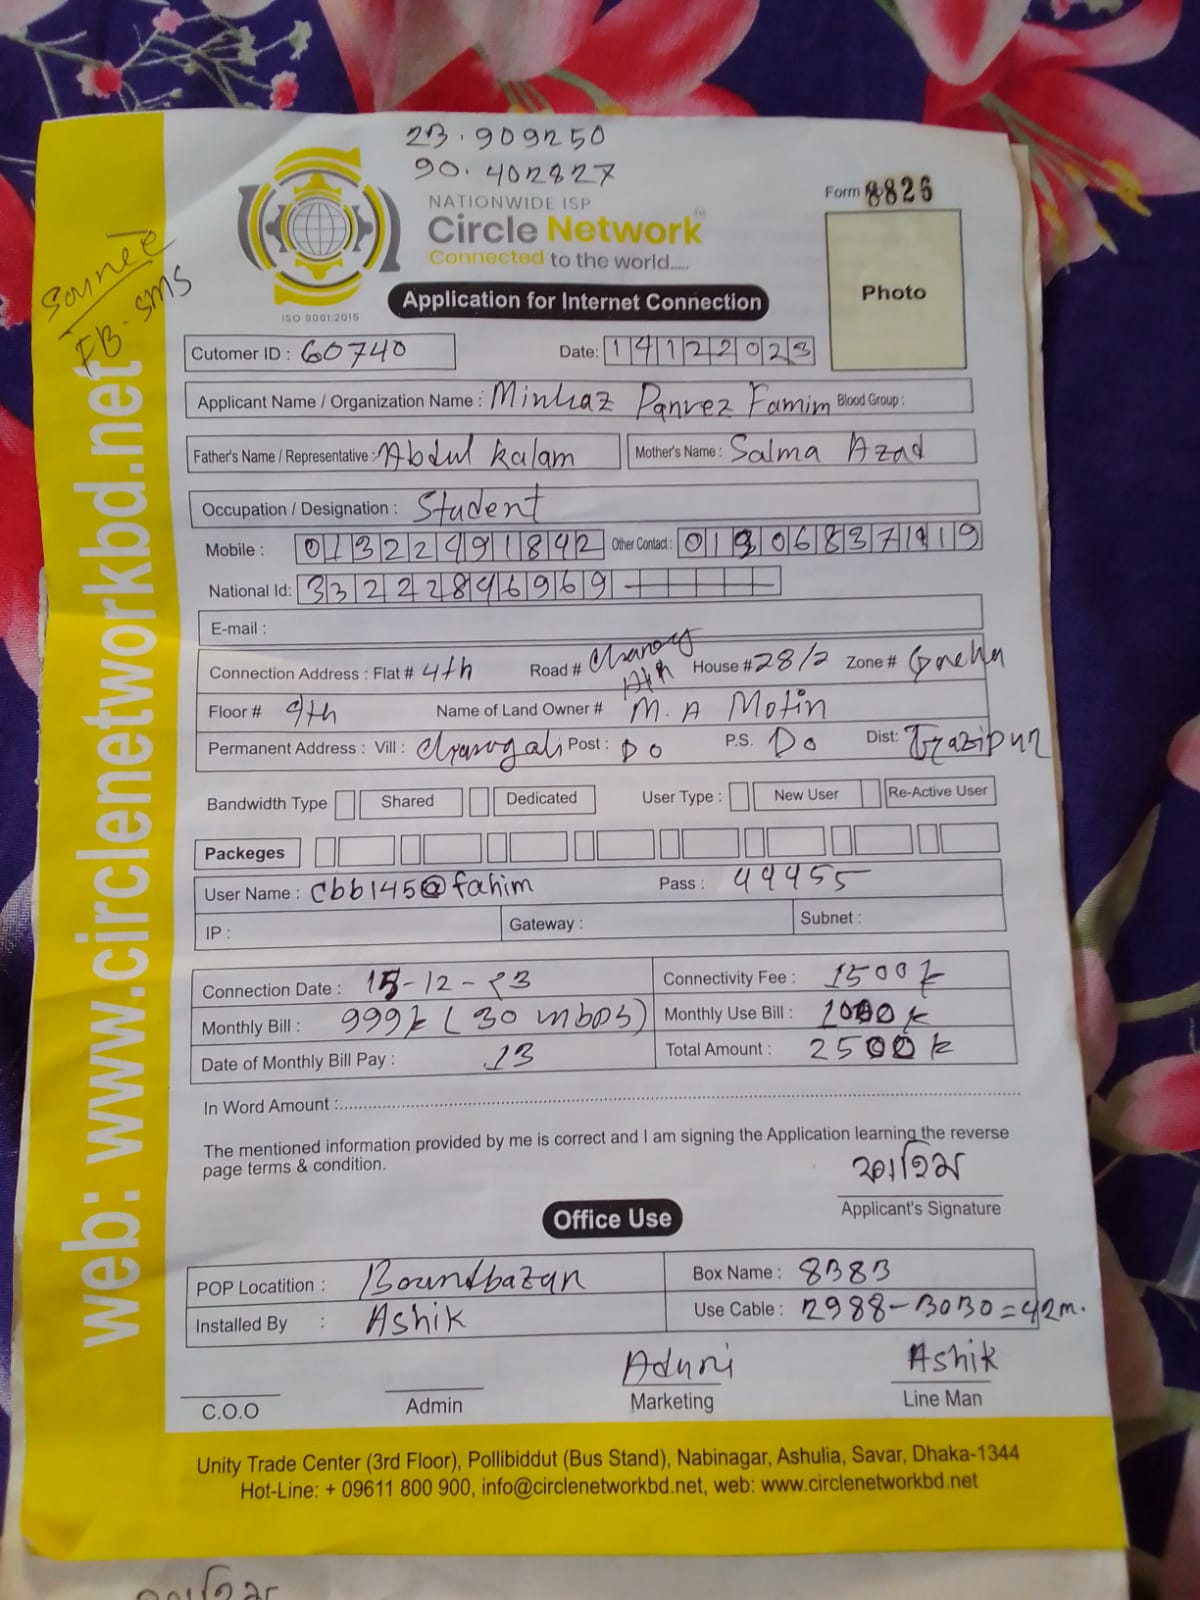 23.909250
90.402827
NATIONWIDE ISP
Circle Network
Connected to the world.....
ISO 9001:2015
Form 8826
Photo
Source
FB. SMS
Application for Internet Connection
Cutomer ID : 60740 Date: 14122023
Applicant Name / Organization Name : Minhaz Panvez Famim Blood Group :
Father's Name / Representative : Abdul Kalam Mother's Name : Salma Azad
Occupation / Designation : Student
Mobile : Other Contact :
National Id: 3322284 6969
E-mail :
Connection Address : Flat # 4th Road # House # 28/2 Zone #
Floor # 9th Name of Land Owner # M. A Motin
Permanent Address : Vill : Post : DO P.S. Do Dist: Gazipur
Bandwidth Type Shared Dedicated User Type : New User Re-Active User
Packeges
User Name : cbb145@fahim Pass : 49455
IP : Gateway : Subnet :
Connection Date : 15-12-23 Connectivity Fee : 1500 k
Monthly Bill : 999k (30 mbps) Monthly Use Bill : 1000 k
Date of Monthly Bill Pay : 13 Total Amount : 2500 k
In Word Amount :
The mentioned information provided by me is correct and I am signing the Application learning the reverse
page terms & condition.
Applicant's Signature
Office Use
POP Locatition : Box Name : 8383
Installed By : Ashik Use Cable : 2988-3030=42m.
Ashik
C.O.O Admin Marketing Line Man
Unity Trade Center (3rd Floor), Pollibiddut (Bus Stand), Nabinagar, Ashulia, Savar, Dhaka-1344
Hot-Line: + 09611 800 900, info@circlenetworkbd.net, web: www.circlenetworkbd.net
web: www.circlenetworkbd.net